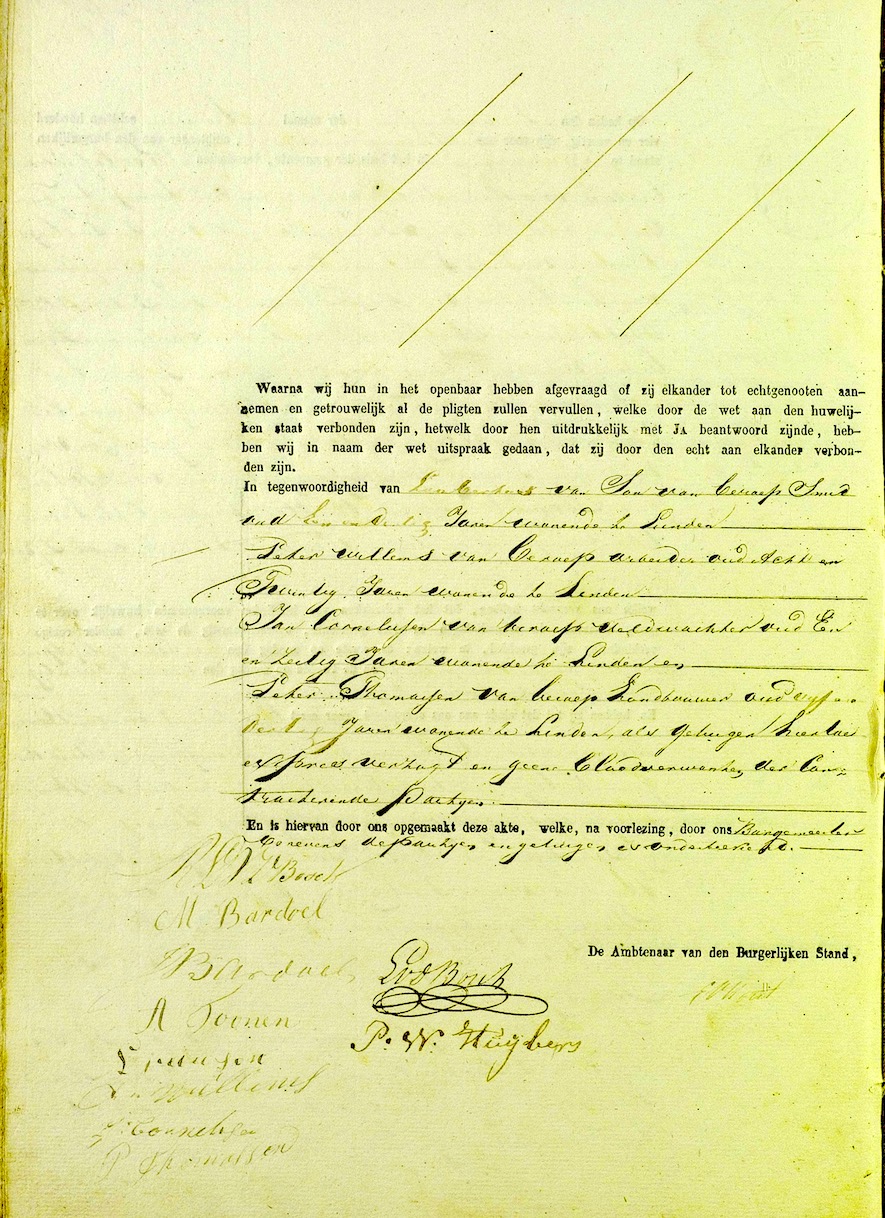 Waarna wij hun in het openbaar hebben afgevraagd of zij elkander tot echtgenooten aan-
nemen en getrouwelijk al de pligten zullen vervullen, welke door de wet aan den huwelij-
ken staat verbonden zijn, hetwelk door hen uitdrukkelijk met JA beantwoord zijnde, heb-
ben wij in naam der wet uitspraak gedaan, dat zij door den echt aan elkander verbon-
den zijn.
In tegenwoordigheid van van Son van beroep Smid
oud Een en Dertig Jaren wonende te Linden
Peter Willems van Beroep arbeider oud Acht en
Twintig Jaren wonende te Linden
Jan Cornelissen van beroep veldwachter oud Een
en Jaren wonende te Linden en
Peter Thomassen van beroep Landbouwer oud vyf en
Dertig Jaren wonende te Linden, als getuigen hier toe
expres verzogt en geene Bloedverwanten der Con-
tracterende Partyen.
En is hiervan door ons opgemaakt deze akte, welke, na voorlezing, door ons Burgemeester
benevens de partyen en getuigen is onderteekend.
Bosch
M Bardoel
Bardoel
A Toonen
Willems
Cornelissen
P Thomassen
LvdBosch
P. W. Huybers
De Ambtenaar van den Burgerlijken Stand,